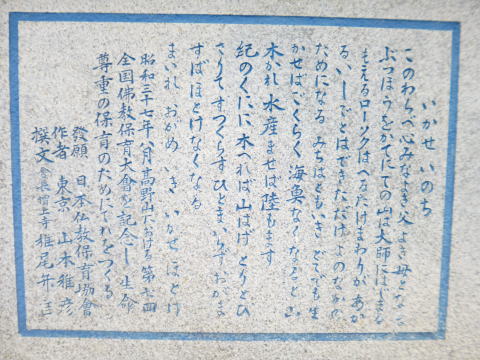 いかせ いのち
このわらべ心みなよき父よき母となって
ぶっぽうをかてにての山は大師にはじまる
もえるローソクはへるだけまわりがあか
る いしでとはできただけ よのなかの
ためになる みちはともいき どてでも生
かせばごくらく 海臭くなると山
木かれ 水産ませば陸もます
紀のくにに木へれば山はげ とりとひ
さりてすつくらすひとまいらずおがま
ずばほとけなくなる
まいれ おがめ いき いかせ ほとけ
昭和三十七年八月高野山における第六回
全国佛教保育大會を記念し 生命
尊重の保育のためにこれをつくる
發願 日本仏教保育協會
作者 東京 山本雅彦
撰文 會長 増上寺 椎尾弁匡